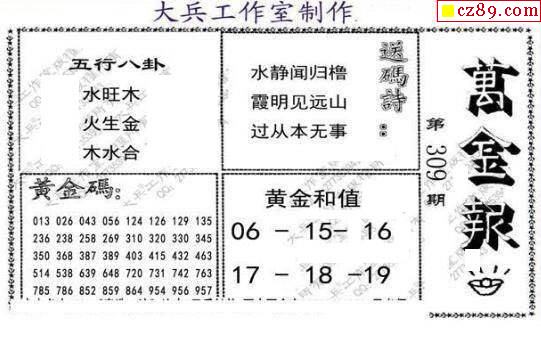 大兵工作室制作
cz89.com
萬金報
第309期
五行八卦
水旺木
火生金
木水合
送碼詩:
水静闻归橹
霞明见远山
过从本无事
黄金碼:
013 026 043 056 124 126 129 135
236 238 258 269 310 320 330 345
350 368 387 389 403 415 432 463
514 538 639 648 720 731 742 763
785 786 852 859 864 954 956 957
黄金和值
06 - 15- 16
17 - 18 -19